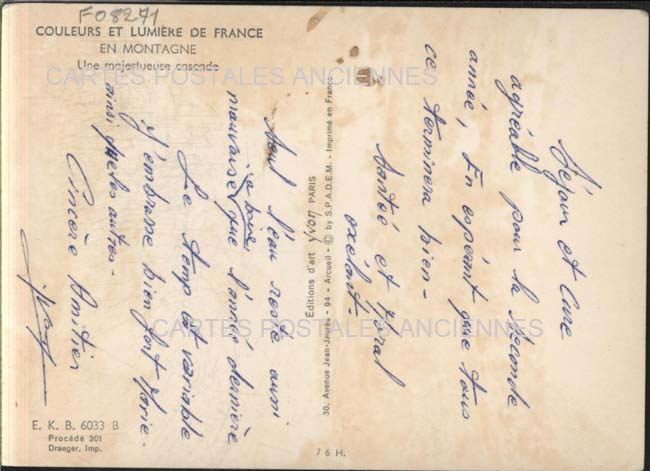 F08271
COULEURS ET LUMIÈRE DE FRANCE
EN MONTAGNE
Une majestueuse cascade
CARTES POSTALES ANCIENNES
Séjour et Cure
agréable pour la séconde
année, En espérant que tous
ce terminera bien -
Santée et Moral
exélant.
Seul l'eau reste aussi
mauvaise à boire, que l'année dernière
Le temp est variable
J'embrasse bien fort Marie-
ainsi que les autres -
Cincère Amitier
Éditions d'art YVON PARIS
30, Avenue Jean-Jaurès - 94 - Arcueil - © by S.P.A.D.E.M. - Imprimé en France
CARTES POSTALES ANCIENNES
E. K. B. 6033 B
Procédé 301
Draeger, Imp.
76 H.